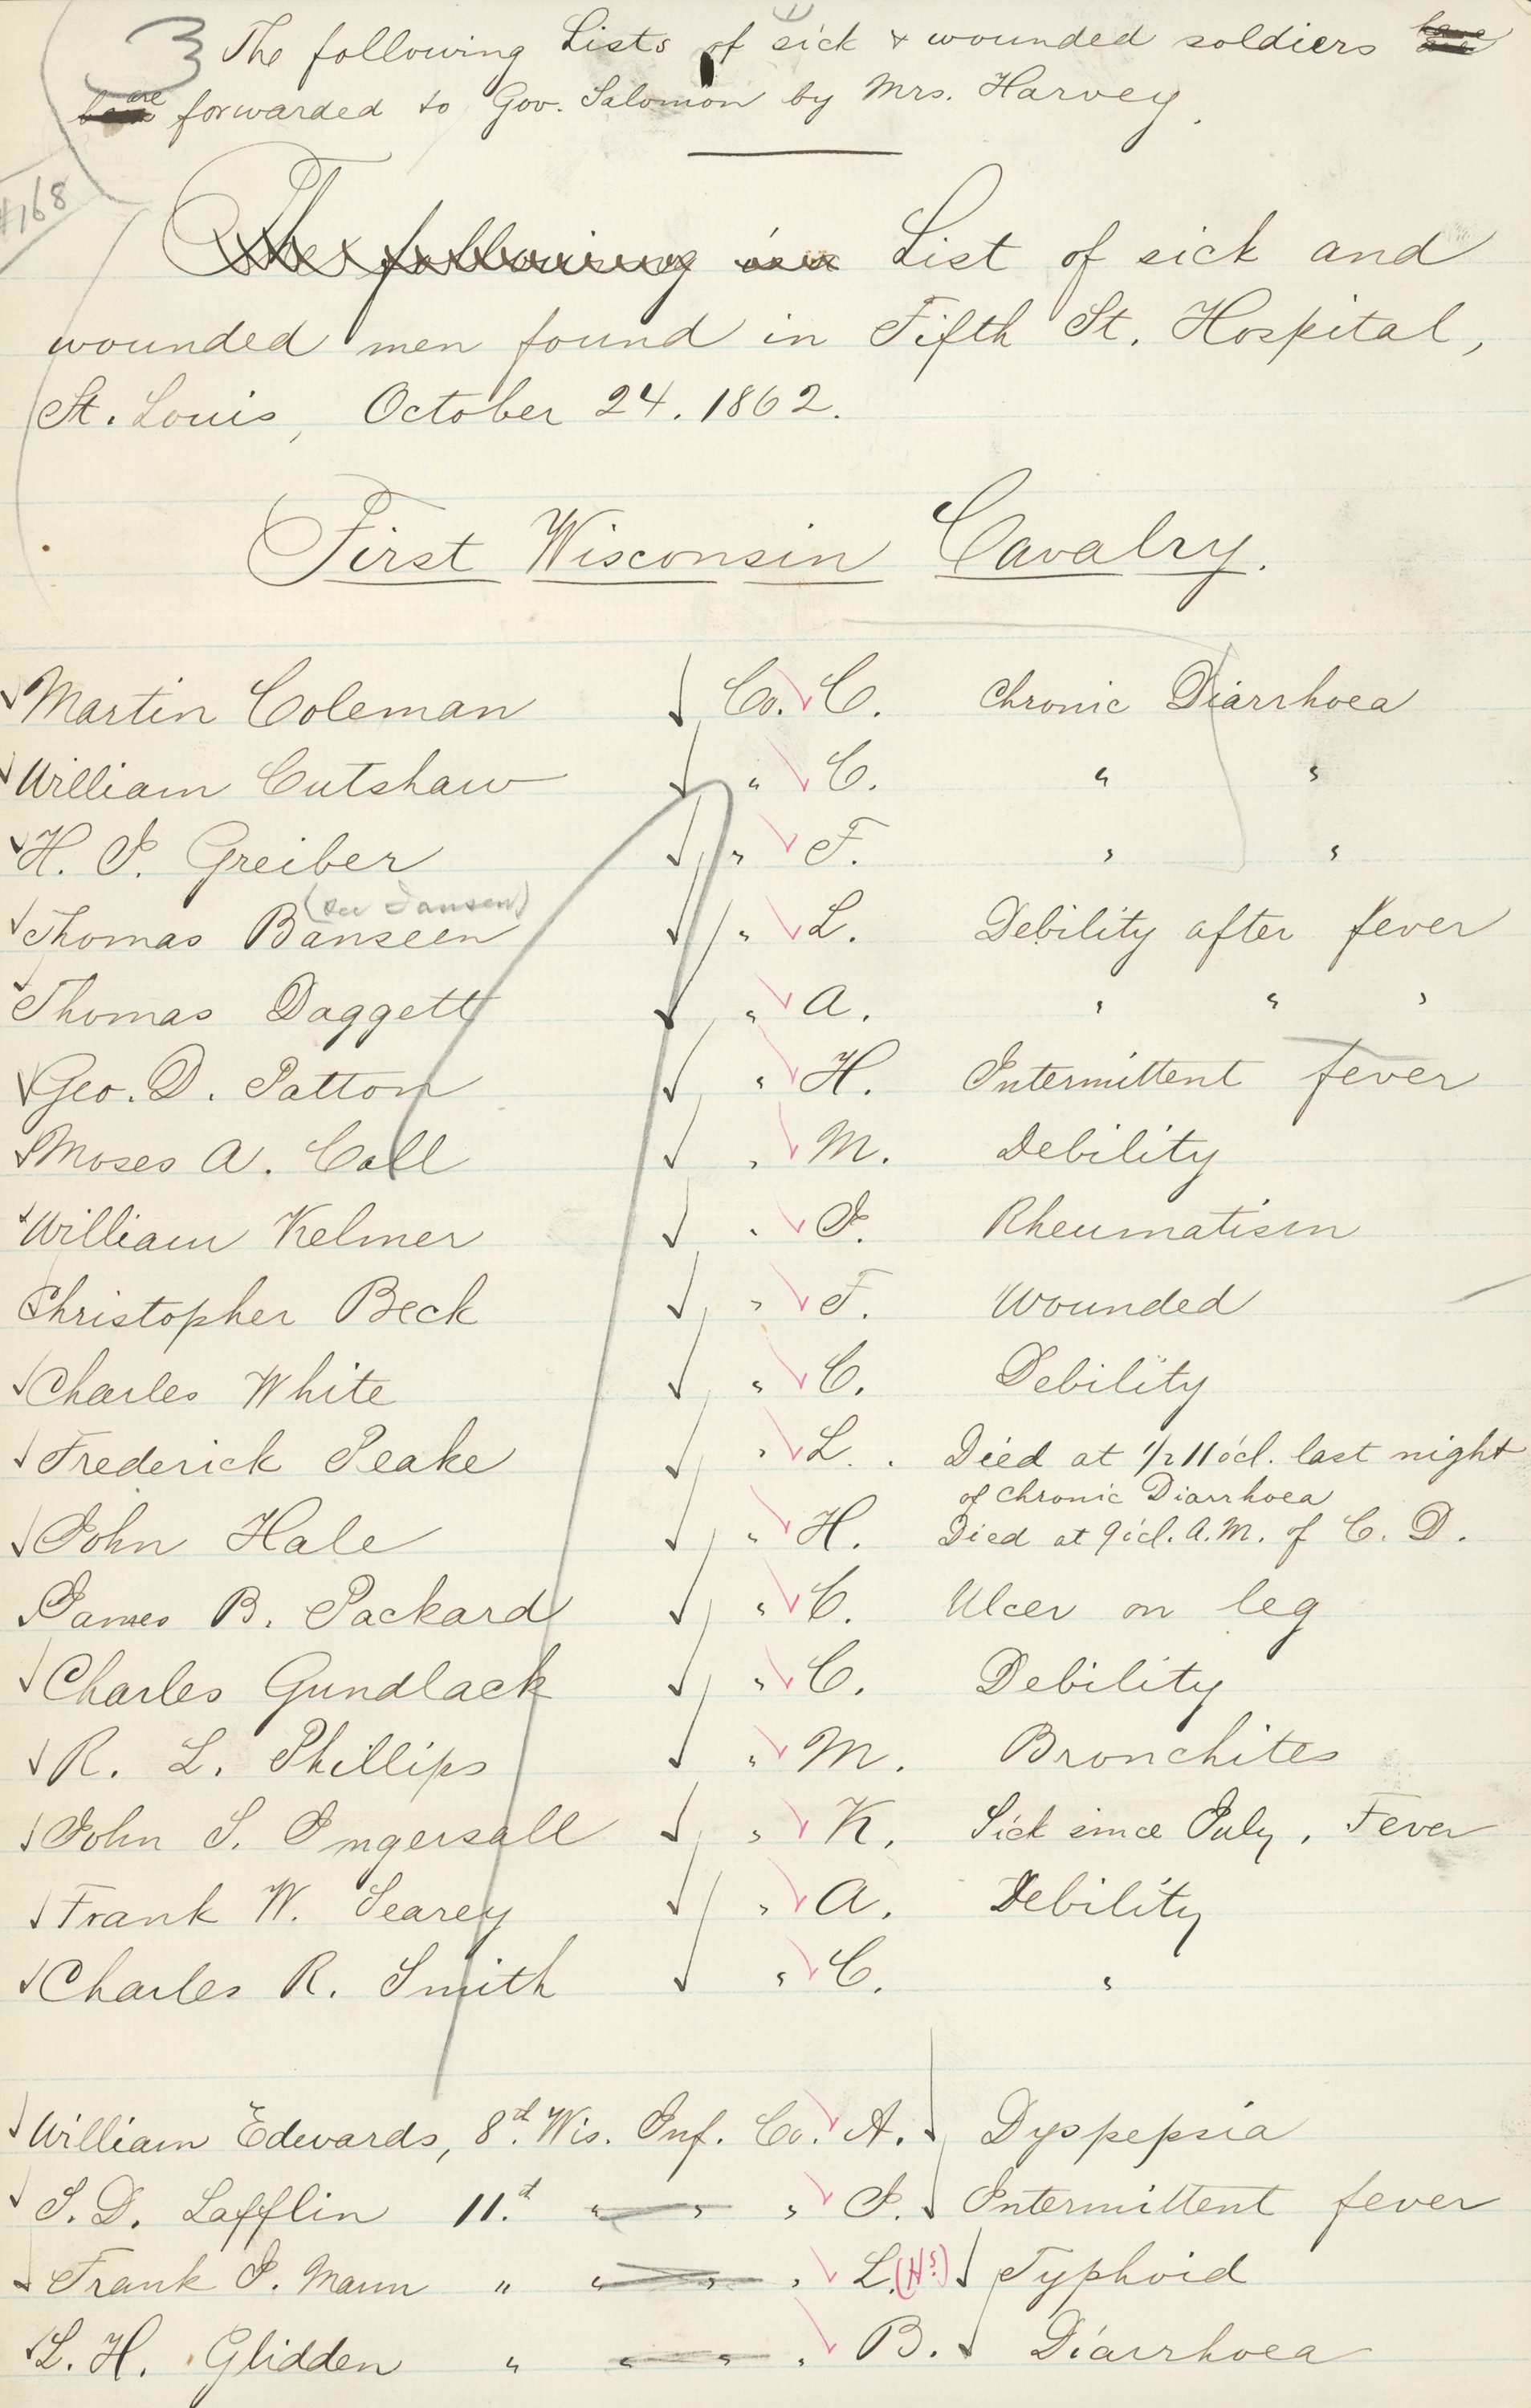 3 The following Lists of sick & wounded soldiers
are forwarded to Gov. Salomon by Mrs. Harvey.
#168
The following is a List of sick and
wounded men found in Fifth St. Hospital,
St. Louis, October 24. 1862.
First Wisconsin Cavalry.
Martin Coleman Co. C. Chronic Diarrhoea
William Cutshaw " C. " "
H. I. Greiber " F. " "
(see Jansen)
Thomas Banseen " L. Debility after fever
Thomas Daggett " A. " " "
Geo. D. Patton " H. Intermittent fever
Moses A. Call " M. Debility
William Kelmer " I. Rheumatism
Christopher Beck " F. Wounded
Charles White " C. Debility
Frederick Peake " L. Died at 1/2 11 o'cl. last night
of Chronic Diarrhoea
John Hale " H. Died at 9 o'cl. A.M. of C. D.
James B. Packard " C. Ulcer on leg
Charles Gundlack " C. Debility
R. L. Phillips " M. Bronchites
John S. Ingersall " K. Sick since July, Fever
Frank W. Searey " A. Debility
Charles R. Smith " C. "
William Edwards, 8th. Wis. Inf. Co. A. Dyspepsia
S. D. Lafflin 11.th " " " I. Intermittent fever
Frank I. Mann " " " " L. (H?) Typhoid
L. H. Glidden " " " " B. Diarrhoea